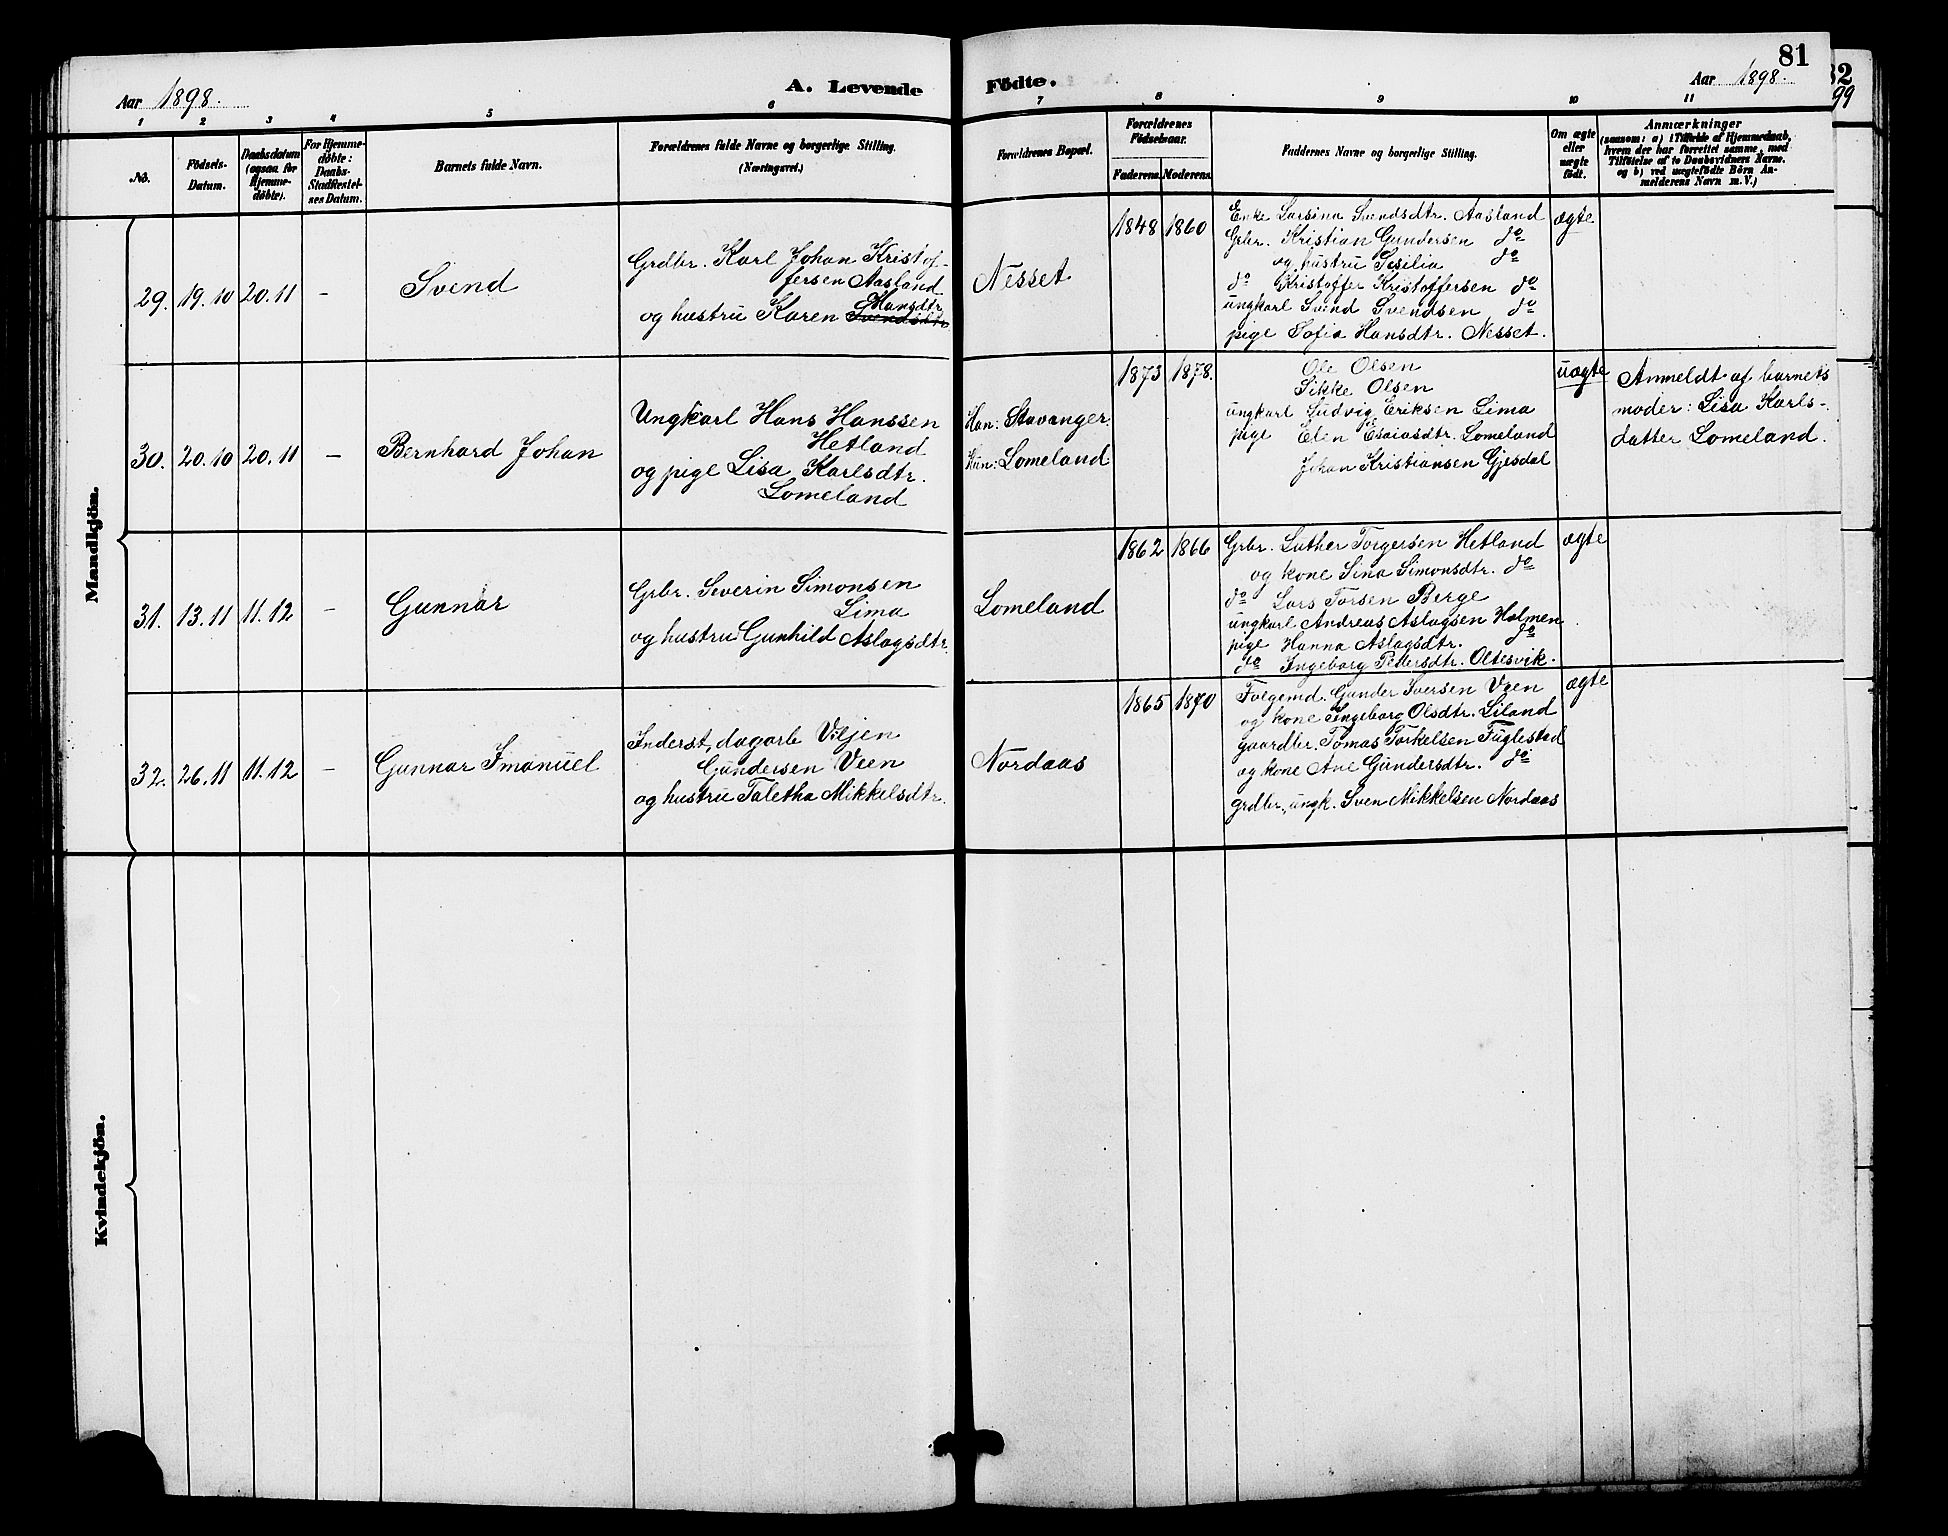 Aar 1898.
A. Levende
1 2 3 4 5 6
No.
Födsels-
Datum.
Daabsdatum
(ogsaa for
Hjemme-
döbte).
For Hjemme-
döbte:
Daabs-
Stadfæstel-
ses Datum.
Barnets fulde Navn.
Forældrenes fulde Navne og borgerlige Stilling.
(Næringsvei.)
Mandkjön.
29. 19.10 20.11 –
Svend
Grdbr. Karl Johan Kristof-
fersen Aasland
Hansdtr.
og hustru Karen Svendsdtr
30. 20.10 20.11 –
Bernhard Johan
Ungkarl Hans Hanssen
Hetland
og pige Lisa Karlsdtr.
Lomeland
31. 13.11 11.12 –
Gunnar
Grbr. Severin Simonsen
Lima
og hustru Gunhild Aslagsdtr.
32. 26.11 11.12 –
Gunnar Imanuel
Inderst, dagarb Viljen
Gundersen Veen
og hustru Taletha Mikkelsdtr.
Kvindekjön.
81
Födte.
Aar 1898.
7 8 9 10 11
Forældrenes Bopæl.
Forældrenes
Födselsaar.
Faderens. Moderens.
Faddernes Navne og borgerlige Stilling.
Om ægte
eller
uægte
födt.
Anmærkninger
(saasom: a) i Tilfælde af Hjemmedaab,
hvem der har forrettet samme, med
Tilföielse af to Daabsvidners Navne.
og b) ved uægtefödte Börn An-
melderens Navn m.V.)
Nesset
1848 1860
Enke Larsina Svendsdtr. Aasland
Grbr. Kristian Gundersen do
og hustru Sesilia do
do Kristoffer Kristoffersen do
ungkarl Svend Svendsen do
pige Sofia Hansdtr. Nesset.
ægte
Han: Stavanger.
Hun: Lomeland
1873 1878.
Ole Olsen
Sikke Olsen
ungkarl Ludvig Eriksen Lima
pige Elen Esaiasdtr. Lomeland
Johan Kristiansen Gjesdal
uægte
Anmeldt af barnets
moder: Lisa Karls-
datter Lomeland.
Lomeland
1862 1866
Grbr. Luther Torgersen Hetland
og kone Sina Simonsdtr. do
do Lars Torsen Berge
ungkarl Andreas Aslagsen Holmen
pige Hanna Aslagsdtr. do
do Ingeborg Pedersdtr. Oltesvik.
ægte
Nordaas
1865 1870
Folgemd. Gunder Iversen Veen
og kone Ingeborg Olsdtr. Liland
gaardbr. Tomas Torkelsen Fuglestad
og kone Ane Gundersdtr. do
grdbr., ungk. Sven Mikkelsen Nordaas
ægte
32
99